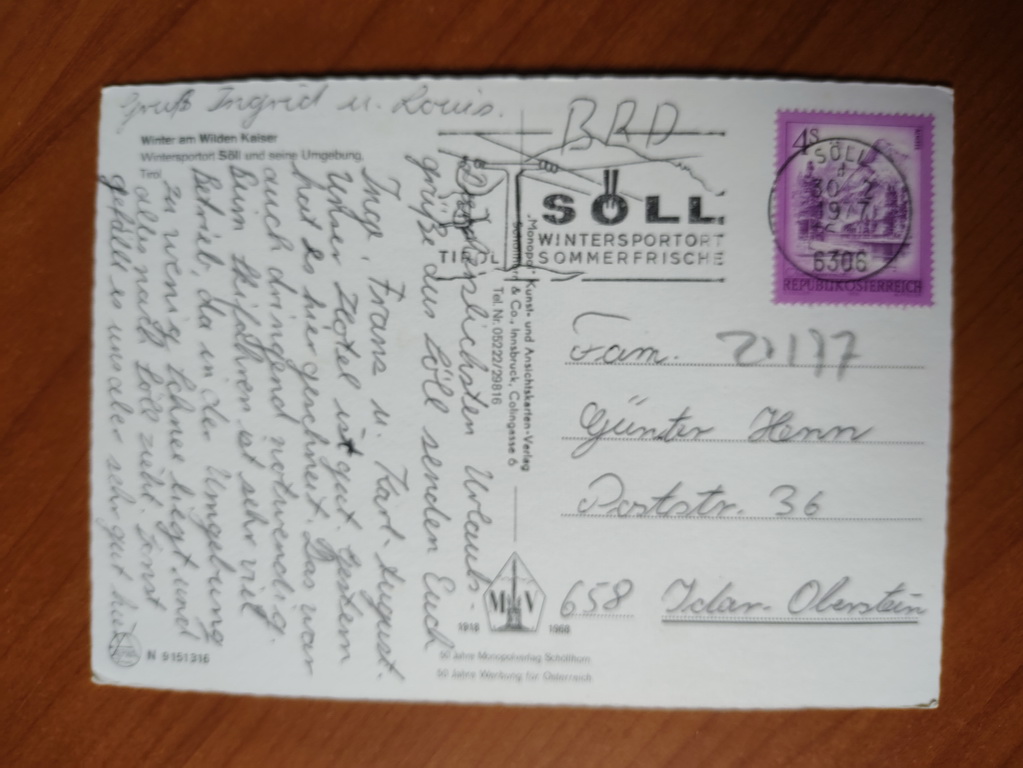 Gruß Ingrid u. Louis.
Winter am Wilden Kaiser
Wintersportort Söll und seine Umgebung,
Tirol
Die herzlichsten Urlaubs-
grüße aus Söll senden Euch
Inga, Franz u. Karl-August.
Unser Hotel ist gut. Gestern
hat es hier geschneit. Das war
auch dringend notwendig.
Beim Skifahren ist sehr viel
Betrieb, da in der Umgebung
zu wenig Schnee liegt und
alles nach Söll zieht. Sonst
gefällt es uns aber sehr gut hier.
"Monopol" Kunst- und Ansichtskarten-Verlag
Schöllhorn & Co., Innsbruck, Colingasse 6
Tel. Nr. 05222/29816
BRD
SÖLL
WINTERSPORTORT
TIROL SOMMERFRISCHE
4S
REPUBLIK ÖSTERREICH
SÖLL
6306
Fam. 21197
Günter Henn
Poststr. 36
658 Idar-Oberstein
M V
1918 1968
50 Jahre Monopolverlag Schöllhorn
50 Jahre Werbung für Österreich
N 9151316